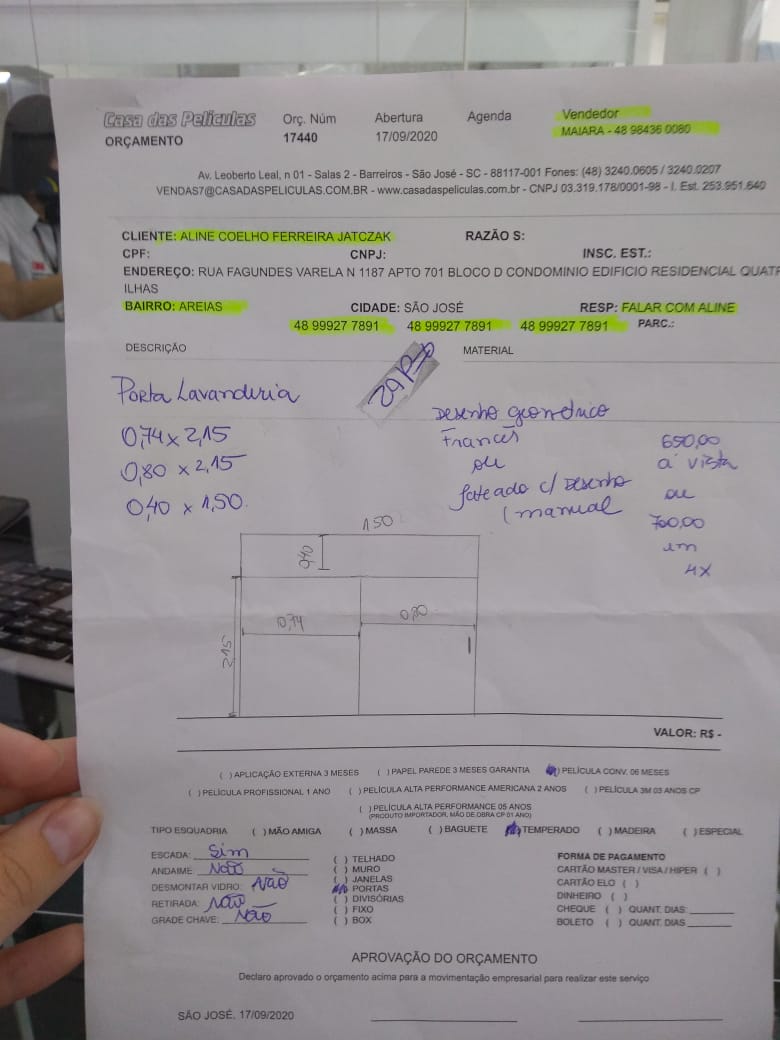 Casa das Películas Orç. Núm Abertura Agenda Vendedor
ORÇAMENTO 17440 17/09/2020 MAIARA - 48 98436 0080
Av. Leoberto Leal, n 01 - Salas 2 - Barreiros - São José - SC - 88117-001 Fones: (48) 3240.0605 / 3240.0207
VENDAS7@CASADASPELICULAS.COM.BR - www.casadaspeliculas.com.br - CNPJ 03.319.178/0001-98 - I. Est. 253.951.640
CLIENTE: ALINE COELHO FERREIRA JATCZAK RAZÃO S:
CPF: CNPJ: INSC. EST.:
ENDEREÇO: RUA FAGUNDES VARELA N 1187 APTO 701 BLOCO D CONDOMINIO EDIFICIO RESIDENCIAL QUATR
ILHAS
BAIRRO: AREIAS CIDADE: SÃO JOSÉ RESP: FALAR COM ALINE
48 99927 7891 48 99927 7891 48 99927 7891 PARC.:
DESCRIÇÃO MATERIAL
Porta Lavanderia
0,74 x 2,15
0,80 x 2,15
0,40 x 1,50
Desenho geométrico
Francês
ou
jateado c/ Desenho
(manual
650,00
a vista
ou
700,00
em
4x
1,50
0,40
0,74 0,80
2,15
VALOR: R$ -
( ) APLICAÇÃO EXTERNA 3 MESES ( ) PAPEL PAREDE 3 MESES GARANTIA ( ) PELÍCULA CONV. 06 MESES
( ) PELÍCULA PROFISSIONAL 1 ANO ( ) PELÍCULA ALTA PERFORMANCE AMERICANA 2 ANOS ( ) PELÍCULA 3M 03 ANOS CP
( ) PELÍCULA ALTA PERFORMANCE 05 ANOS
(PRODUTO IMPORTADOR, MÃO DE OBRA CP 01 ANO)
TIPO ESQUADRIA ( ) MÃO AMIGA ( ) MASSA ( ) BAGUETE ( ) TEMPERADO ( ) MADEIRA ( ) ESPECIAL
ESCADA: Sim
ANDAIME: Não
DESMONTAR VIDRO: Não
RETIRADA: Não
GRADE CHAVE: Não
( ) TELHADO
( ) MURO
( ) JANELAS
( ) PORTAS
( ) DIVISÓRIAS
( ) FIXO
( ) BOX
FORMA DE PAGAMENTO
CARTÃO MASTER / VISA / HIPER ( )
CARTÃO ELO ( )
DINHEIRO ( )
CHEQUE ( ) QUANT. DIAS:
BOLETO ( ) QUANT. DIAS
APROVAÇÃO DO ORÇAMENTO
Declaro aprovado o orçamento acima para a movimentação empresarial para realizar este serviço
SÃO JOSÉ. 17/09/2020